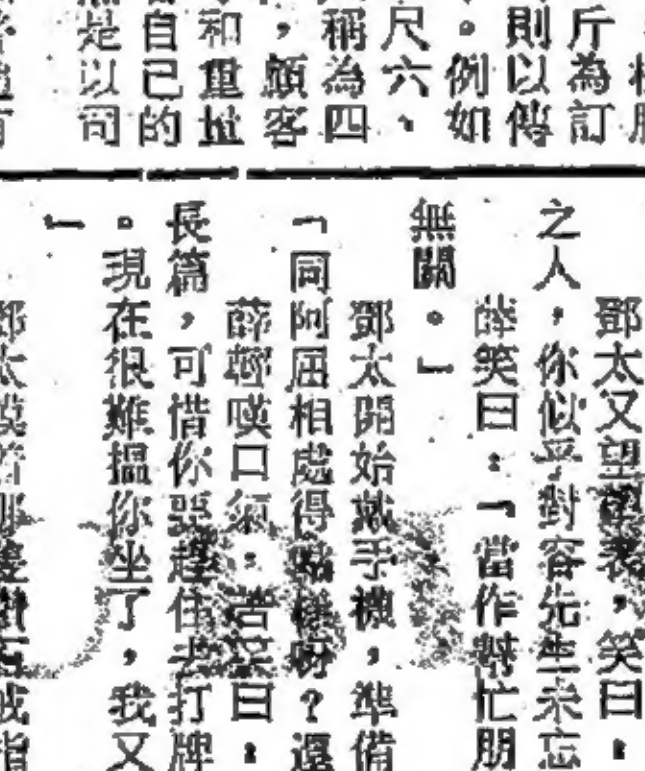 斤為訂
則以傳
。例如
尺六、
稱為四
，顧客
和重
自己的
是以司
鄧太又望表，笑曰：
之人，你似乎對容先生未忘
薛笑曰：「當作幫忙朋
無關。」
鄧太開始戴手襪，準備
「同阿屈相處得呀？還
薛輕嘆口氣，苦笑曰：
長篇，可惜你趕住去打牌
。現在很難搵你坐了，我又
」
鄧太戒指